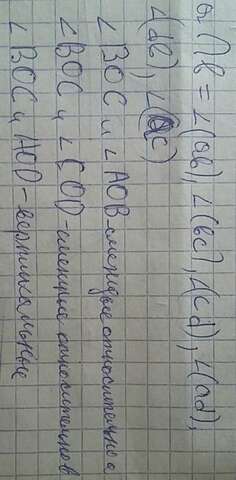 a ∩ b = ∠(ab), ∠(bc), ∠(cd), ∠(ad),
∠(db), ∠(ac)
∠BOC и ∠AOB-смежные относительно a
∠BOC и ∠COD-смежные относительно в
∠BOC и AOD-вертикальные